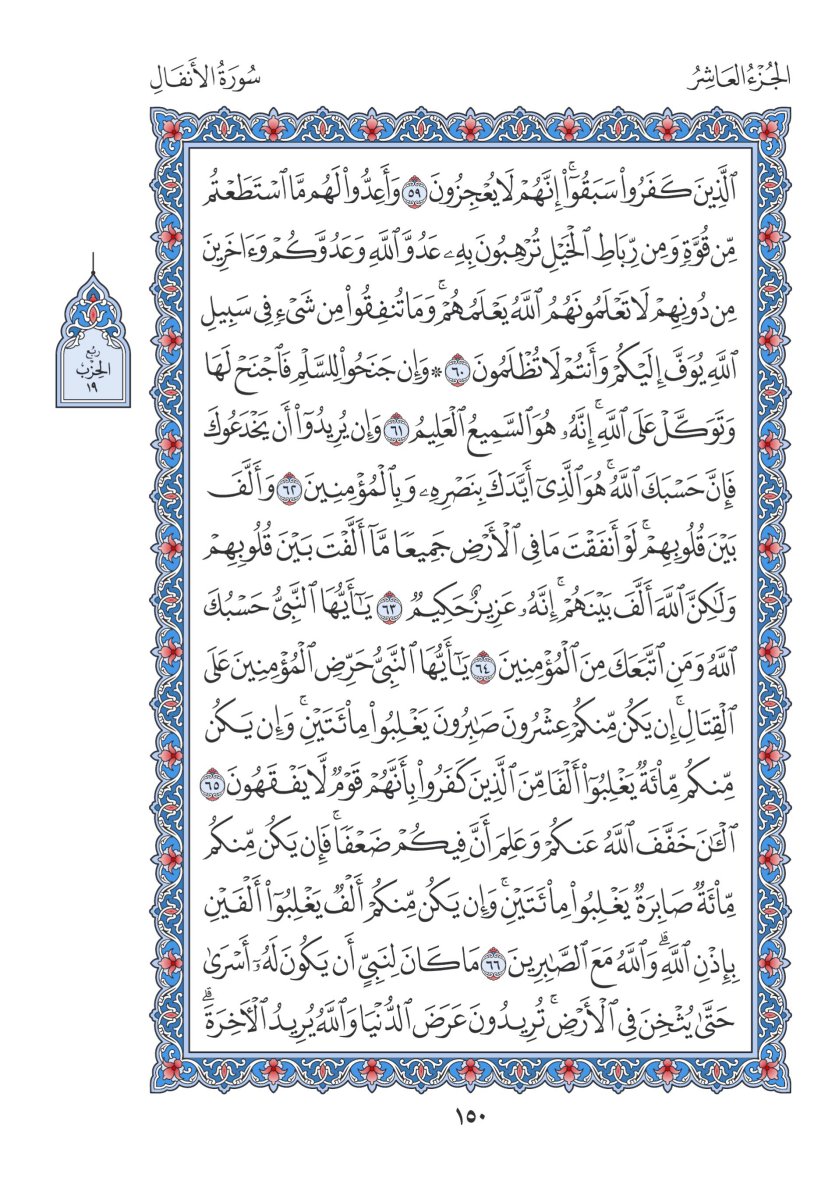 الجُزْءُ العَاشِرُ
سُورَةُ الأَنفَالِ
ٱلَّذِينَ كَفَرُواْ سَبَقُوٓاْۚ إِنَّهُمۡ لَا يُعۡجِزُونَ ٥٩ وَأَعِدُّواْ لَهُم مَّا ٱسۡتَطَعۡتُم
مِّن قُوَّةٖ وَمِن رِّبَاطِ ٱلۡخَيۡلِ تُرۡهِبُونَ بِهِۦ عَدُوَّ ٱللَّهِ وَعَدُوَّكُمۡ وَءَاخَرِينَ
مِن دُونِهِمۡ لَا تَعۡلَمُونَهُمُ ٱللَّهُ يَعۡلَمُهُمۡۚ وَمَا تُنفِقُواْ مِن شَيۡءٖ فِي سَبِيلِ
ٱللَّهِ يُوَفَّ إِلَيۡكُمۡ وَأَنتُمۡ لَا تُظۡلَمُونَ ٦٠ ۞ وَإِن جَنَحُواْ لِلسَّلۡمِ فَٱجۡنَحۡ لَهَا
وَتَوَكَّلۡ عَلَى ٱللَّهِۚ إِنَّهُۥ هُوَ ٱلسَّمِيعُ ٱلۡعَلِيمُ ٦١ وَإِن يُرِيدُوٓاْ أَن يَخۡدَعُوكَ
فَإِنَّ حَسۡبَكَ ٱللَّهُۚ هُوَ ٱلَّذِيٓ أَيَّدَكَ بِنَصۡرِهِۦ وَبِٱلۡمُؤۡمِنِينَ ٦٢ وَأَلَّفَ
بَيۡنَ قُلُوبِهِمۡۚ لَوۡ أَنفَقۡتَ مَا فِي ٱلۡأَرۡضِ جَمِيعٗا مَّآ أَلَّفۡتَ بَيۡنَ قُلُوبِهِمۡ
وَلَٰكِنَّ ٱللَّهَ أَلَّفَ بَيۡنَهُمۡۚ إِنَّهُۥ عَزِيزٌ حَكِيمٞ ٦٣ يَٰٓأَيُّهَا ٱلنَّبِيُّ حَسۡبُكَ
ٱللَّهُ وَمَنِ ٱتَّبَعَكَ مِنَ ٱلۡمُؤۡمِنِينَ ٦٤ يَٰٓأَيُّهَا ٱلنَّبِيُّ حَرِّضِ ٱلۡمُؤۡمِنِينَ عَلَى
ٱلۡقِتَالِۚ إِن يَكُن مِّنكُمۡ عِشۡرُونَ صَٰبِرُونَ يَغۡلِبُواْ مِاْئَتَيۡنِۚ وَإِن يَكُن
مِّنكُم مِّاْئَةٞ يَغۡلِبُوٓاْ أَلۡفٗا مِّنَ ٱلَّذِينَ كَفَرُواْ بِأَنَّهُمۡ قَوۡمٞ لَّا يَفۡقَهُونَ ٦٥
ٱلۡـَٰٔنَ خَفَّفَ ٱللَّهُ عَنكُمۡ وَعَلِمَ أَنَّ فِيكُمۡ ضَعۡفٗاۚ فَإِن يَكُن مِّنكُم
مِّاْئَةٞ صَابِرَةٞ يَغۡلِبُواْ مِاْئَتَيۡنِۚ وَإِن يَكُن مِّنكُمۡ أَلۡفٞ يَغۡلِبُوٓاْ أَلۡفَيۡنِ
بِإِذۡنِ ٱللَّهِۗ وَٱللَّهُ مَعَ ٱلصَّٰبِرِينَ ٦٦ مَا كَانَ لِنَبِيٍّ أَن يَكُونَ لَهُۥٓ أَسۡرَىٰ
حَتَّىٰ يُثۡخِنَ فِي ٱلۡأَرۡضِۚ تُرِيدُونَ عَرَضَ ٱلدُّنۡيَا وَٱللَّهُ يُرِيدُ ٱلۡأٓخِرَةَۗ
ربع
الحِزْبُ
١٩
١٥٠